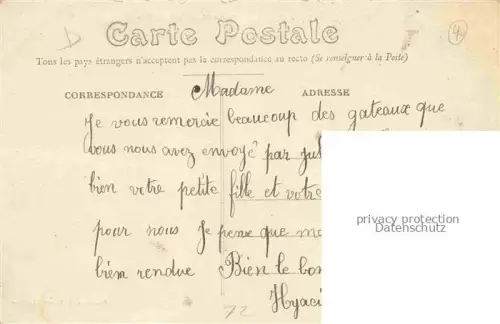 D
Carte Postale
4
Tous les pays étrangers n'acceptent pas la correspondance au recto (Se renseigner à la Poste)
CORRESPONDANCE Madame ADRESSE
Je vous remercie beaucoup des gateaux que
vous nous avez envoyé par
bien votre petite fille et votre
pour nous Je pense que
bien rendue Bien le bon
Hyaci
72
privacy protection
Datenschutz